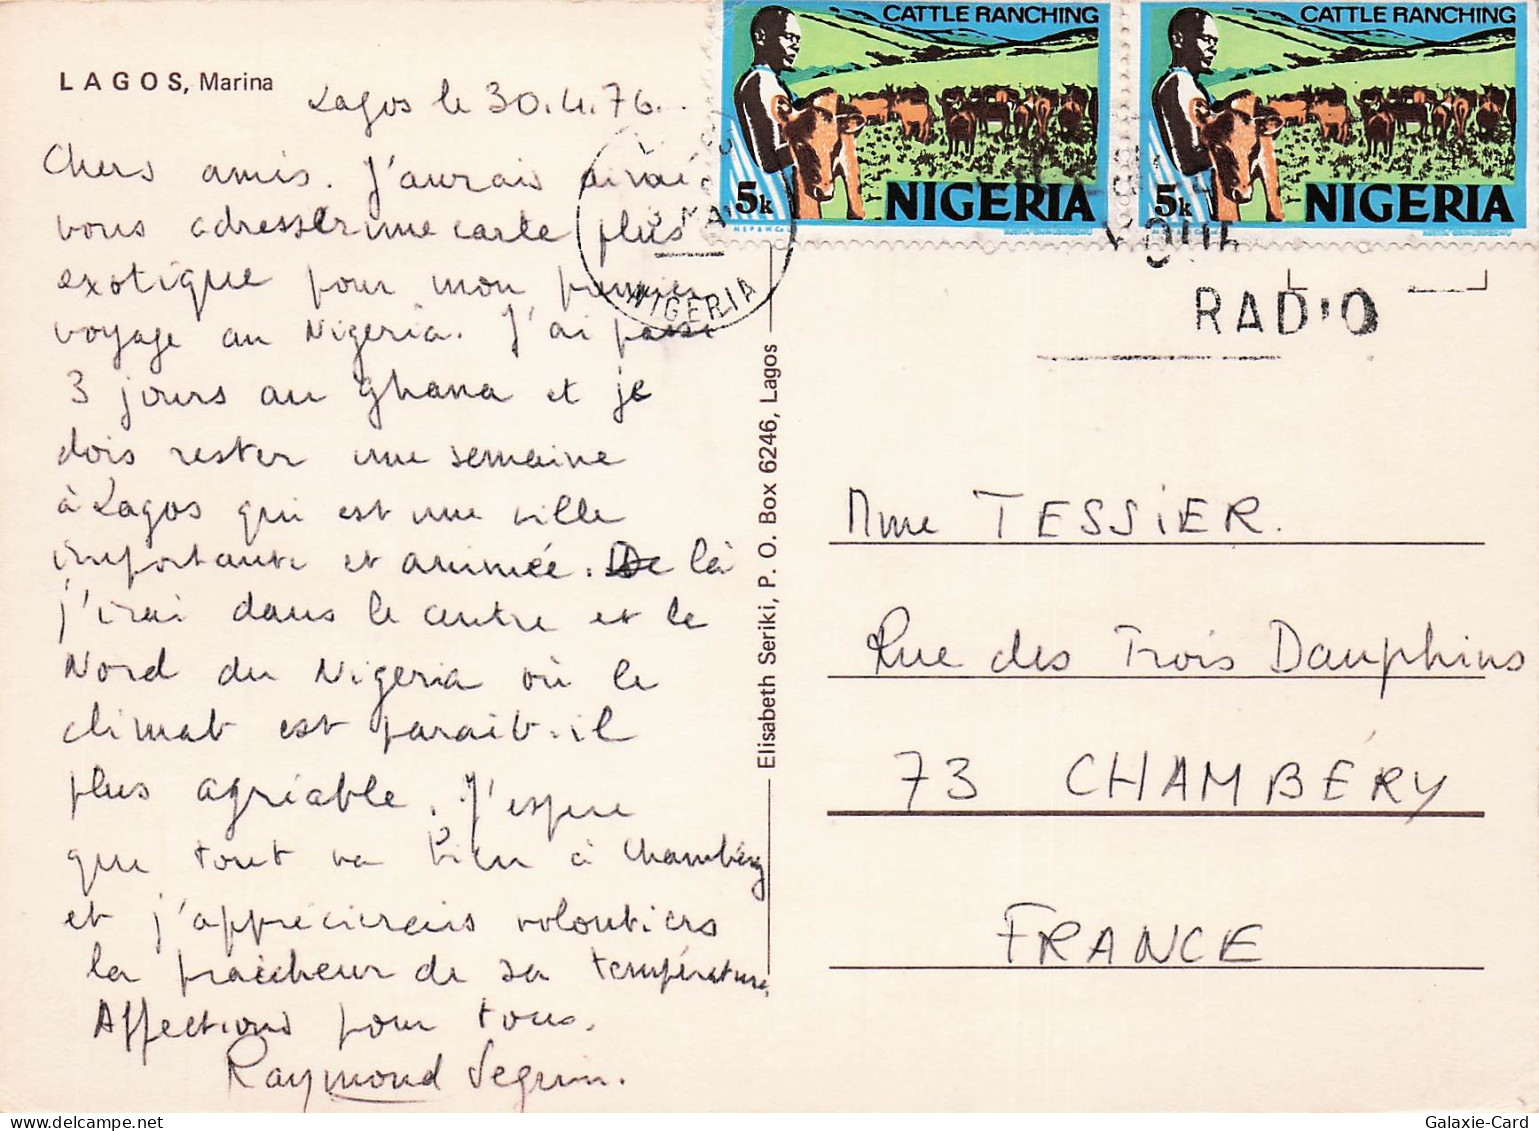 LAGOS, Marina
Lagos le 30.4.76.
Chers amis. J'aurais aimé
vous adresser une carte plus
exotique pour mon premier
voyage au Nigeria. J'ai passé
3 jours au Ghana et je
dois rester une semaine
à Lagos qui est une ville
importante et animée. De là
j'irai dans le centre et le
Nord du Nigeria où le
climat est parait-il
plus agréable. J'espère
que tout va bien à Chambéry
et j'apprécierais volontiers
la fraicheur de sa température.
Affections pour tous.
Raymond Seguin.
Elisabeth Seriki, P. O. Box 6246, Lagos
CATTLE RANCHING
5k NIGERIA
CATTLE RANCHING
5k NIGERIA
NIGERIA
YOUR
RADIO
Mme TESSIER.
Rue des Trois Dauphins
73 CHAMBÉRY
FRANCE
Galaxie-Card